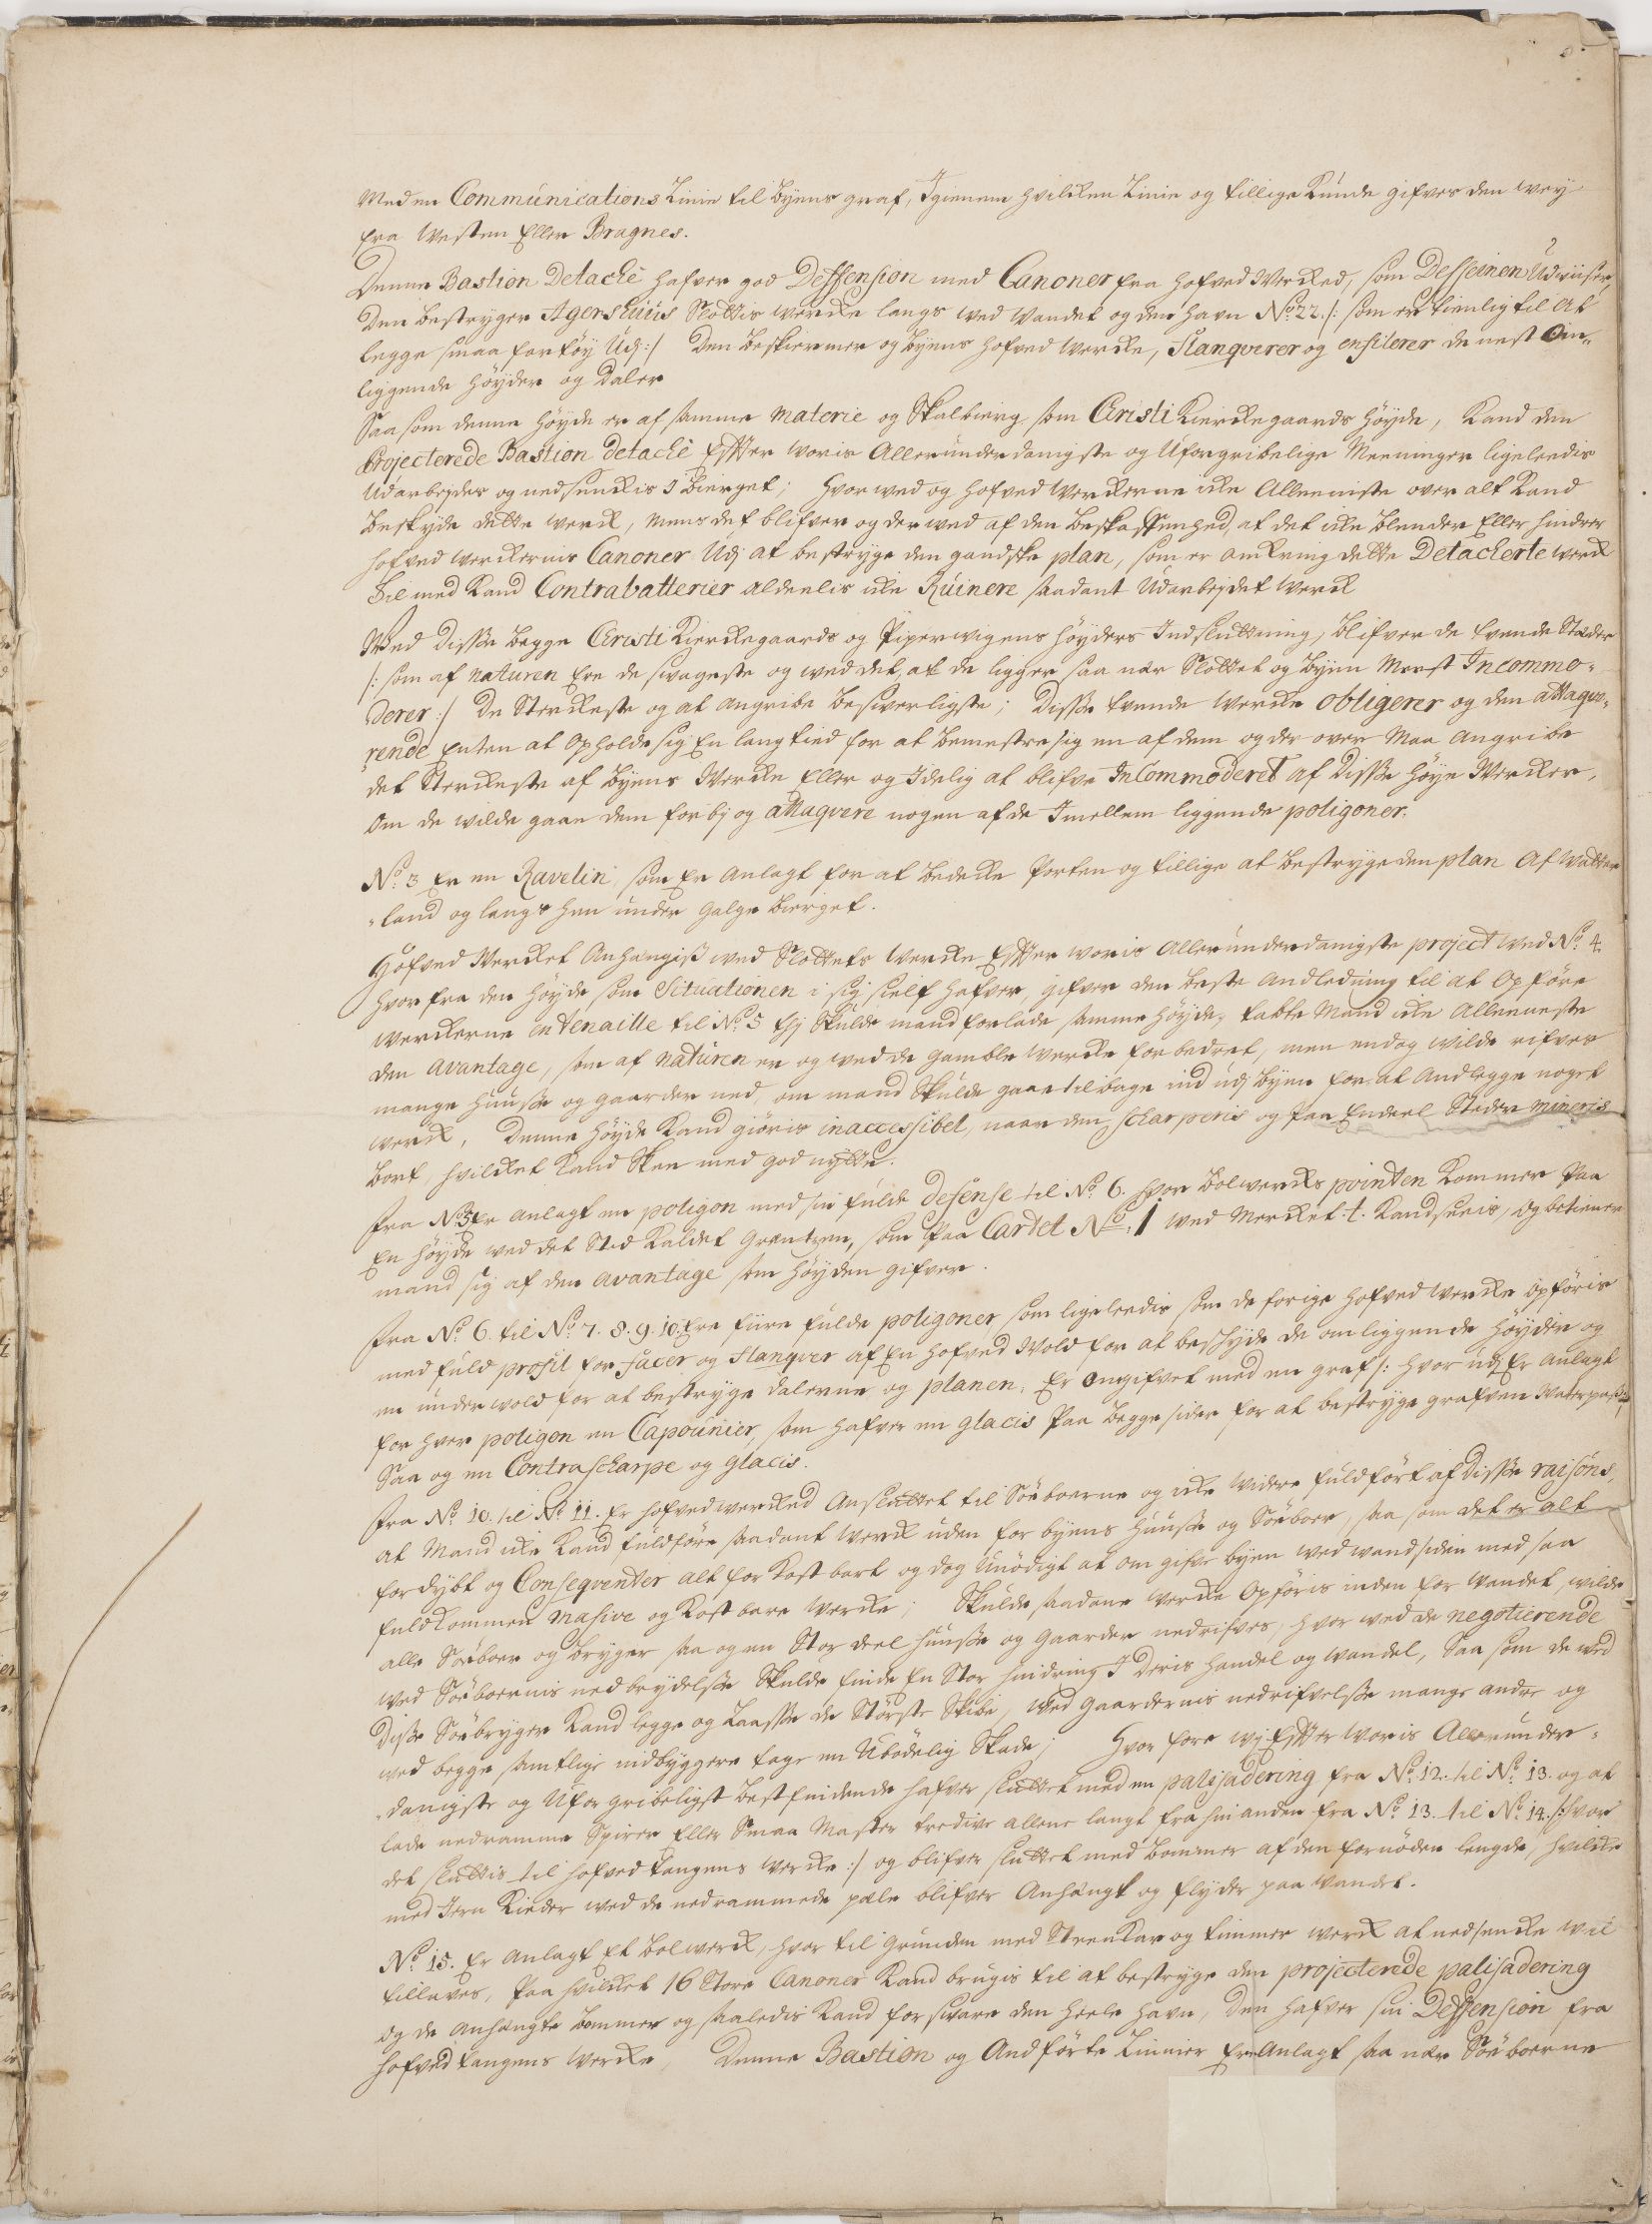 Med en Communications Linie til Byens graf, Igienem hvilcken Linie og tillige Kunde gifves den wey
fra Westen Eller Bragnes.
Denne Bastion Detaché hafver god Deffension med Canoner fra hofved Wercked, som Desseinen Udwiiser,
den bestryger Agershuus Slottis wercke langs wed Vandet og den hafn No. 22. /: som er tienlig til at
legge smaa fartöy Udj :/ Den beskiermer og Byens hofved Wercke, Flanqverer og enfilerer de nest om-
liggende höyder og daler
Saa som denne höyde er af samme materie og Skalbierg som Cristi Kierckegaards höyde, Kand den
Projecterede Bastion detaché Effter woris Allerunderdanigste og Uforgribelige Meeninger ligeleedis
Udarbejdes og nedsenckis i bierget; hvorwed og hofved Werckerne icke Alleeniste over alt Kand
beskyde dette werck, mens det blifver og derwed af den beskaffenhed, at det icke blender Eller hindrer
hofved werckernis Canoner Udj at bestryge den gandske plan, som er omkring dette Detacherte werck
Ej med Kand Contrabatterier aldeelis icke Ruinere saadant Udarbejdet Werck
Med disse begge Cristi Kierckegaards og Piperwigens höyders Indsluttning, blifver de tvende Stæder
/: som af naturen Ere de svageste og wed det, at de ligger saa nær Slottet og byen Meest Incommo-
derer :/ de Sterckeste og at angribe besverligste; Disse tvende Wercke obligerer og den attaqve-
rende Enten at opholde sig En lang tied for at bemestre sig en af dem og der over maa angribe
det Sterckeste af byens Wercke Eller og Idelig at blifve InCommoderet af disse höye Wercker,
om de wilde gaae dem forbj og attaqvere nogen af de Imellem liggende poligoner.
No. 3 Er en Ravelin, som Er anlagt for at bedecke Porten og tillige at bestryge den plan af Watter-
land og langs hen under galge bierget.
Hofved Wercket Anhengiss wed Slottets Wercke Effter woris allerunderdanigste project wed No. 4.
hvorfra den höyde som Situationen i sig sielf hafver, gifver den beste anledning til at opföre
Werckerne en tenaille til No. 5 Ej Skulde mand forlade samme höyde, tabte Mand icke Alleeneste
den avantage, som af naturen er og wed de gamble wercke forbedret, men endog wilde rifves
mange huusse og gaarder ned, om mand Skulde gaae tilbage ind udj byen for at anlegge noget
werck, Denne höyde Kand giöris inaccessibel, naar den scharperis og paa Endeel Steder mineris
bort, hvilcket Kand Skee med god nytte.
Fra No. 5 Er anlagt en poligon med sin fulde defense til No. 6. hvor Bolwercks pointen Kommer Paa
En höyde wed det Sted Kaldet Grentzen, som Paa Cartet No. 1 wed Mercket t. Kand seeis, og betiener
mand sig af den avantage som höyden gifver.
Fra No. 6. til No. 7. 8. 9. 10. Ere fiire fulde poligoner, som ligeleedis som de forige hofved Wercke opföris
med fuld profil for facer og Flanqver af En hofved Wold for at beskyde de omliggende höyder og
en under wold for at bestryge dalerne og planen, Er omgifvet med en graf /: hvor udj Er anlagt
for hver poligon en Capounier, som hafver en glacis Paa begge sider for at bestryge grafven Waterpass :/
Saa og en Contrascharpe og glacis.
Fra No. 10. til No. 11. Er hofvedwercked Ansluttet til Söeboerne og icke Widere fuldfört af disse raisons,
at Mand icke Kand fuldföre saadant Werck uden for byens huusse og Söeboer, saa som det er alt
for dybt og Conseqventer alt for Kostbart og dog Unödigt at omgifve byen wed wandsiden med saa
fuldkommen masive og Kostbare Wercke; Skulde saadane Wercke opföris inden for Vandet, wilde
alle Söeboer og brygger saa og en Stor deel huusse og gaarder nedrifves, hvor wed de negotierende
wed Söeboernis nedbrydelsse Skulde finde En Stor hindring I deris handel og wandel, Saa som de wed
disse Söebrygger Kand legge og Laasse de Störste Skibe, wed gaardernis nedrifvelsse mange andre og
wed begge samtlige indbyggere tage en Ubodelig Skade; Hvor fore wj Effter woris Allerunder-
danigste og Uforgribeligst befindende hafver sluttet med en palisadering fra No. 12. til No. 13. og at
lade nedramme Spirer Eller Smaa Master tredive allene langt fra hinanden fra No. 13. til No. 14. /: hvor
det sluttis til hofved tangens Wercke :/ og blifver sluttet med bommer af den fornöden lengde, hvilcke
med Jern Kieder wed de nedrammede pæle blifver anhengt og flyder paa wandet.
No. 15. Er anlagt Et bolwerck, hvor til grunden med Steenkar og timmer werck at nedsencke wil
tillaves, Paa hvilcket 16 Store Canoner Kand brugis til at bestryge den projecterede palisadering
og de anhengte bommer og saaledis Kand forsvare den heele havn, den hafver sin Deffension fra
hofved tangens Wercke, Denne Bastion og Andförte Linier Ere Anlagt saa nær Söeboerne